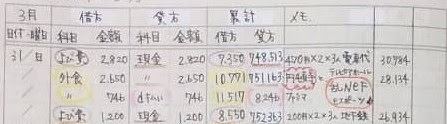 3月 借方 貸方 累計 メモ
日付・曜日 科目 金額 科目 金額 借方 貸方
31/日 よび費 2,820 現金 2,820 7,350 748,513 470円×2×3人 電車代 30,984
外食 2,650 〃 2,650 10,771 751,163 円 28,134
〃 746 d払い 746 11,517 8,246 ファミマ
よび費 1,200 現金 1,200 8,550 752,363 200円×2×3人 地下鉄 26,934